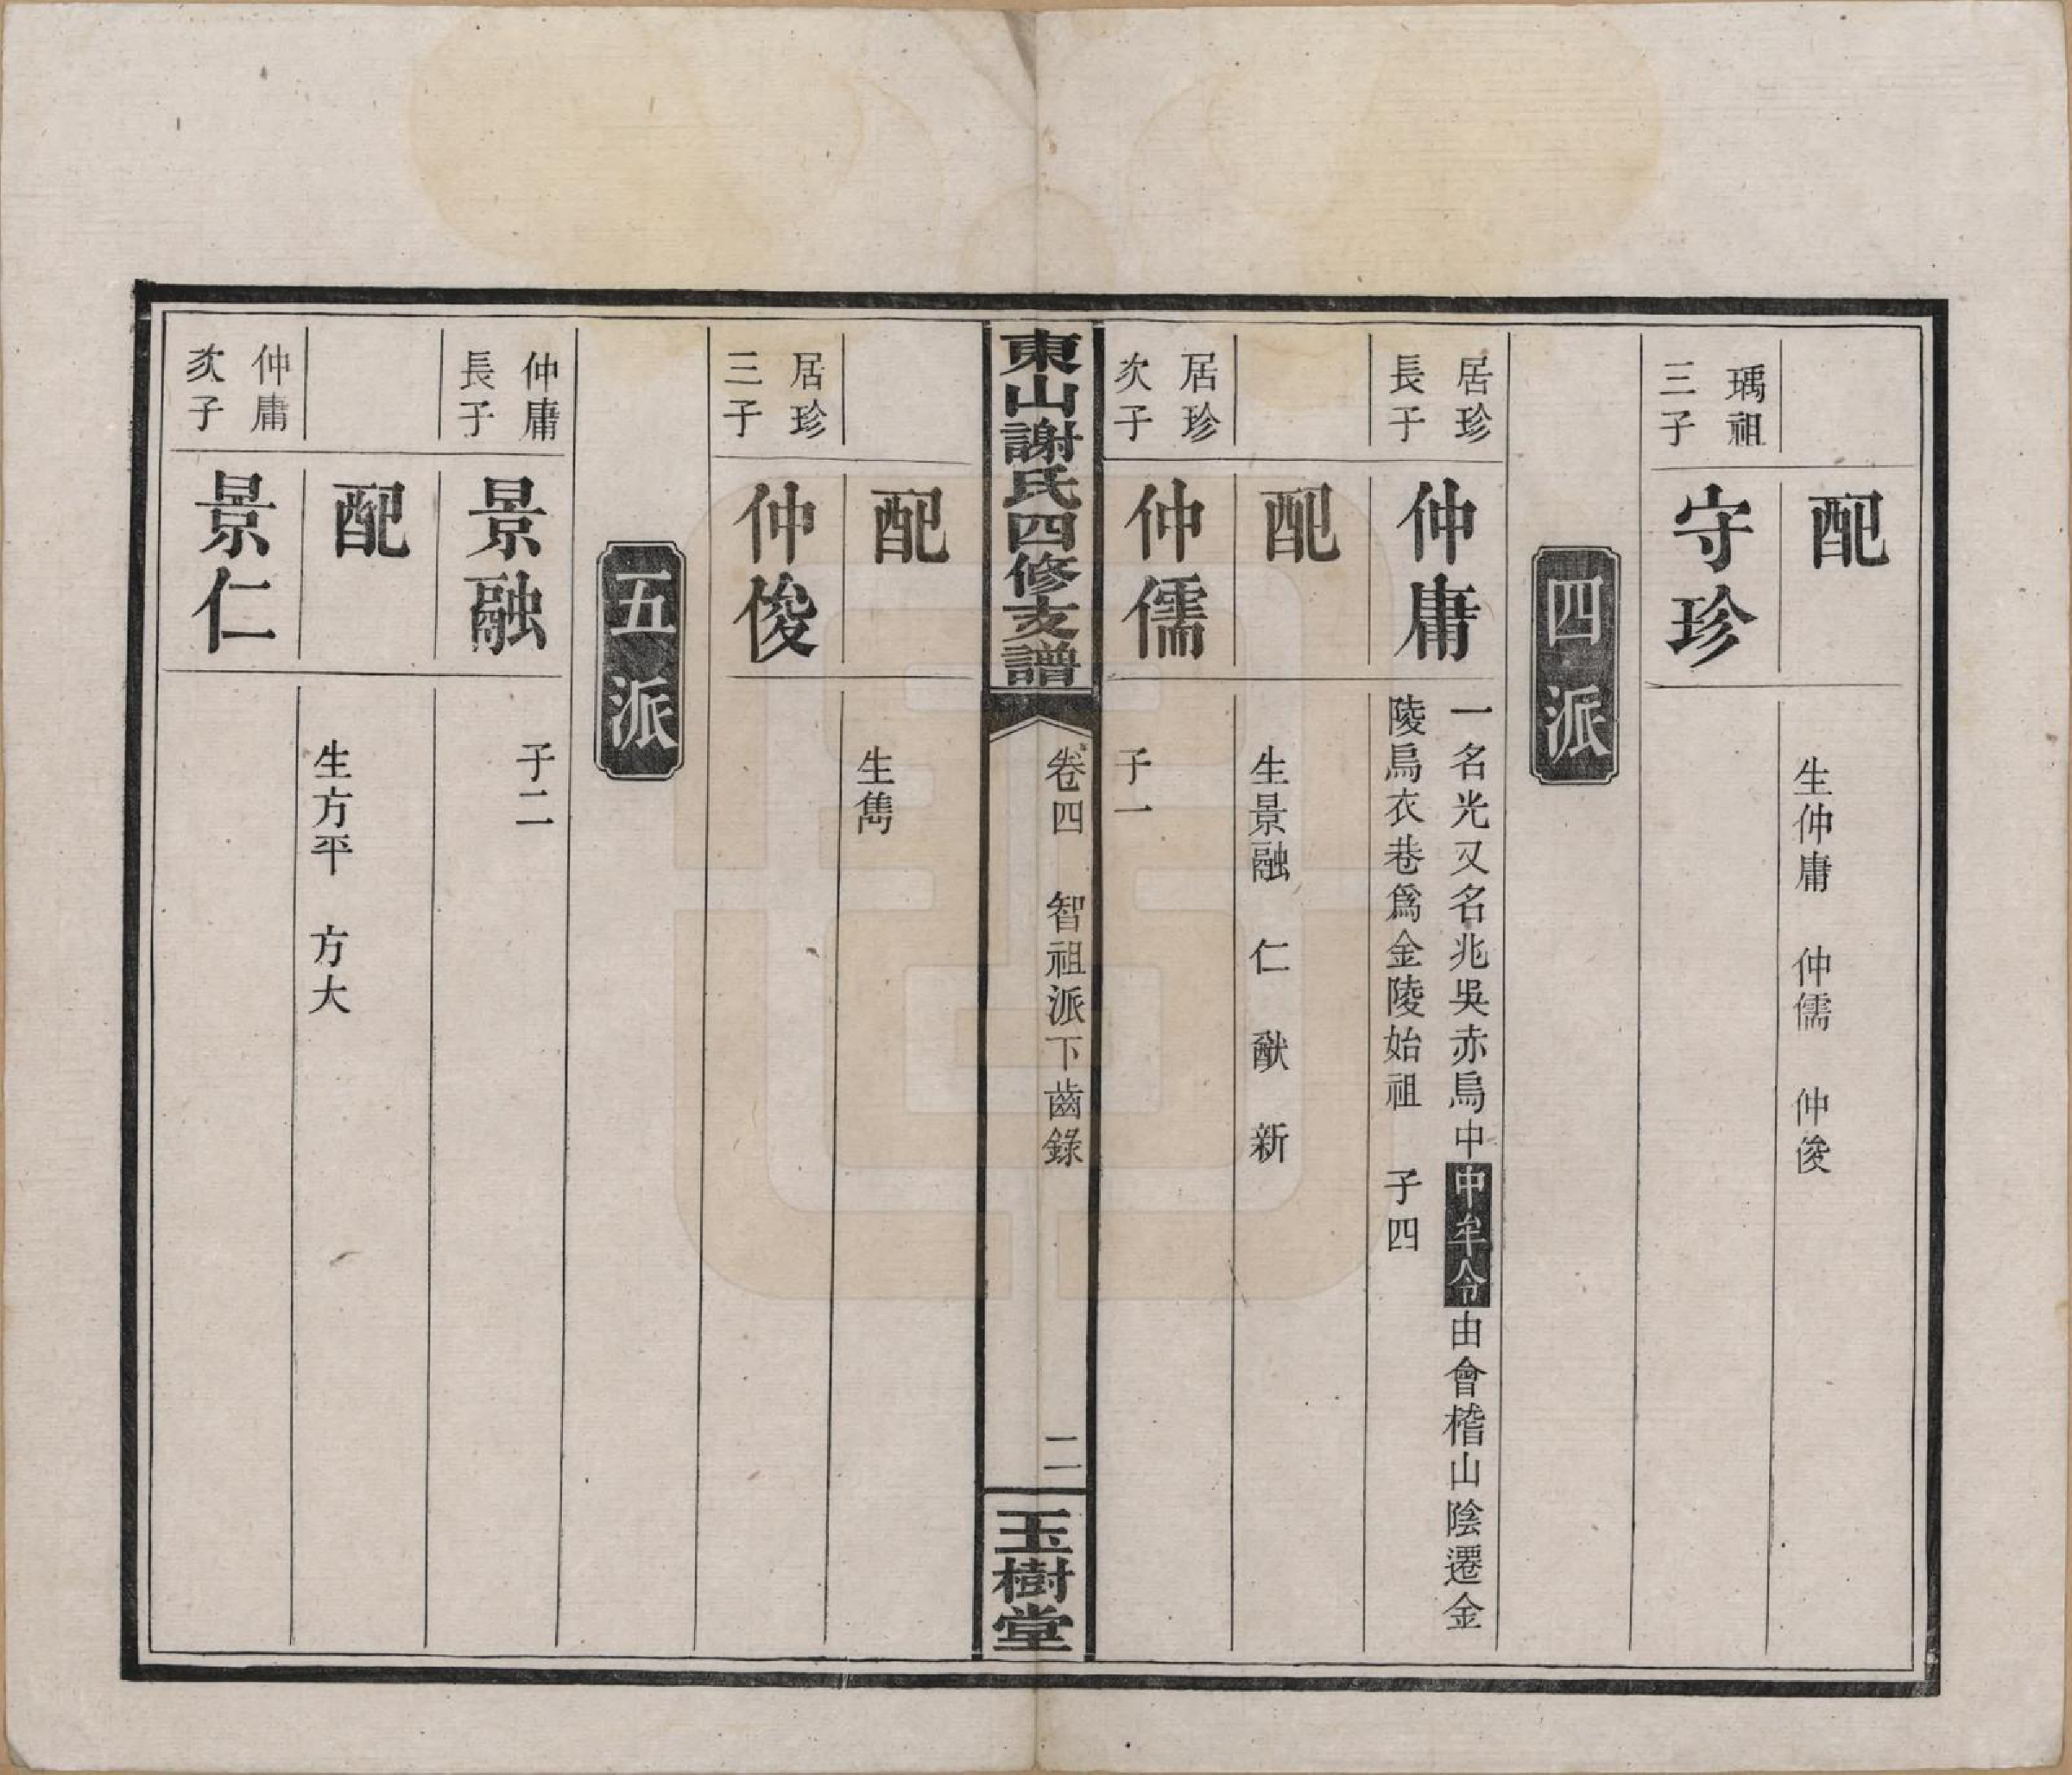 配
生仲庸　仲儒　仲俊
瑀祖
三子
守珍
四派
居珍
長子
仲庸
一名光又名兆吳赤烏中中牟令由會稽山陰遷金
陵烏衣巷為金陵始祖　子四
配
生景融　仁　猷　新
居珍
次子
仲儒
子一
東山謝氏四修支譜
卷四　智祖派下齒錄
二
玉樹堂
配
生雋
居珍
三子
仲俊
五派
仲庸
長子
景融
子二
配
生方平　方大
仲庸
次子
景仁